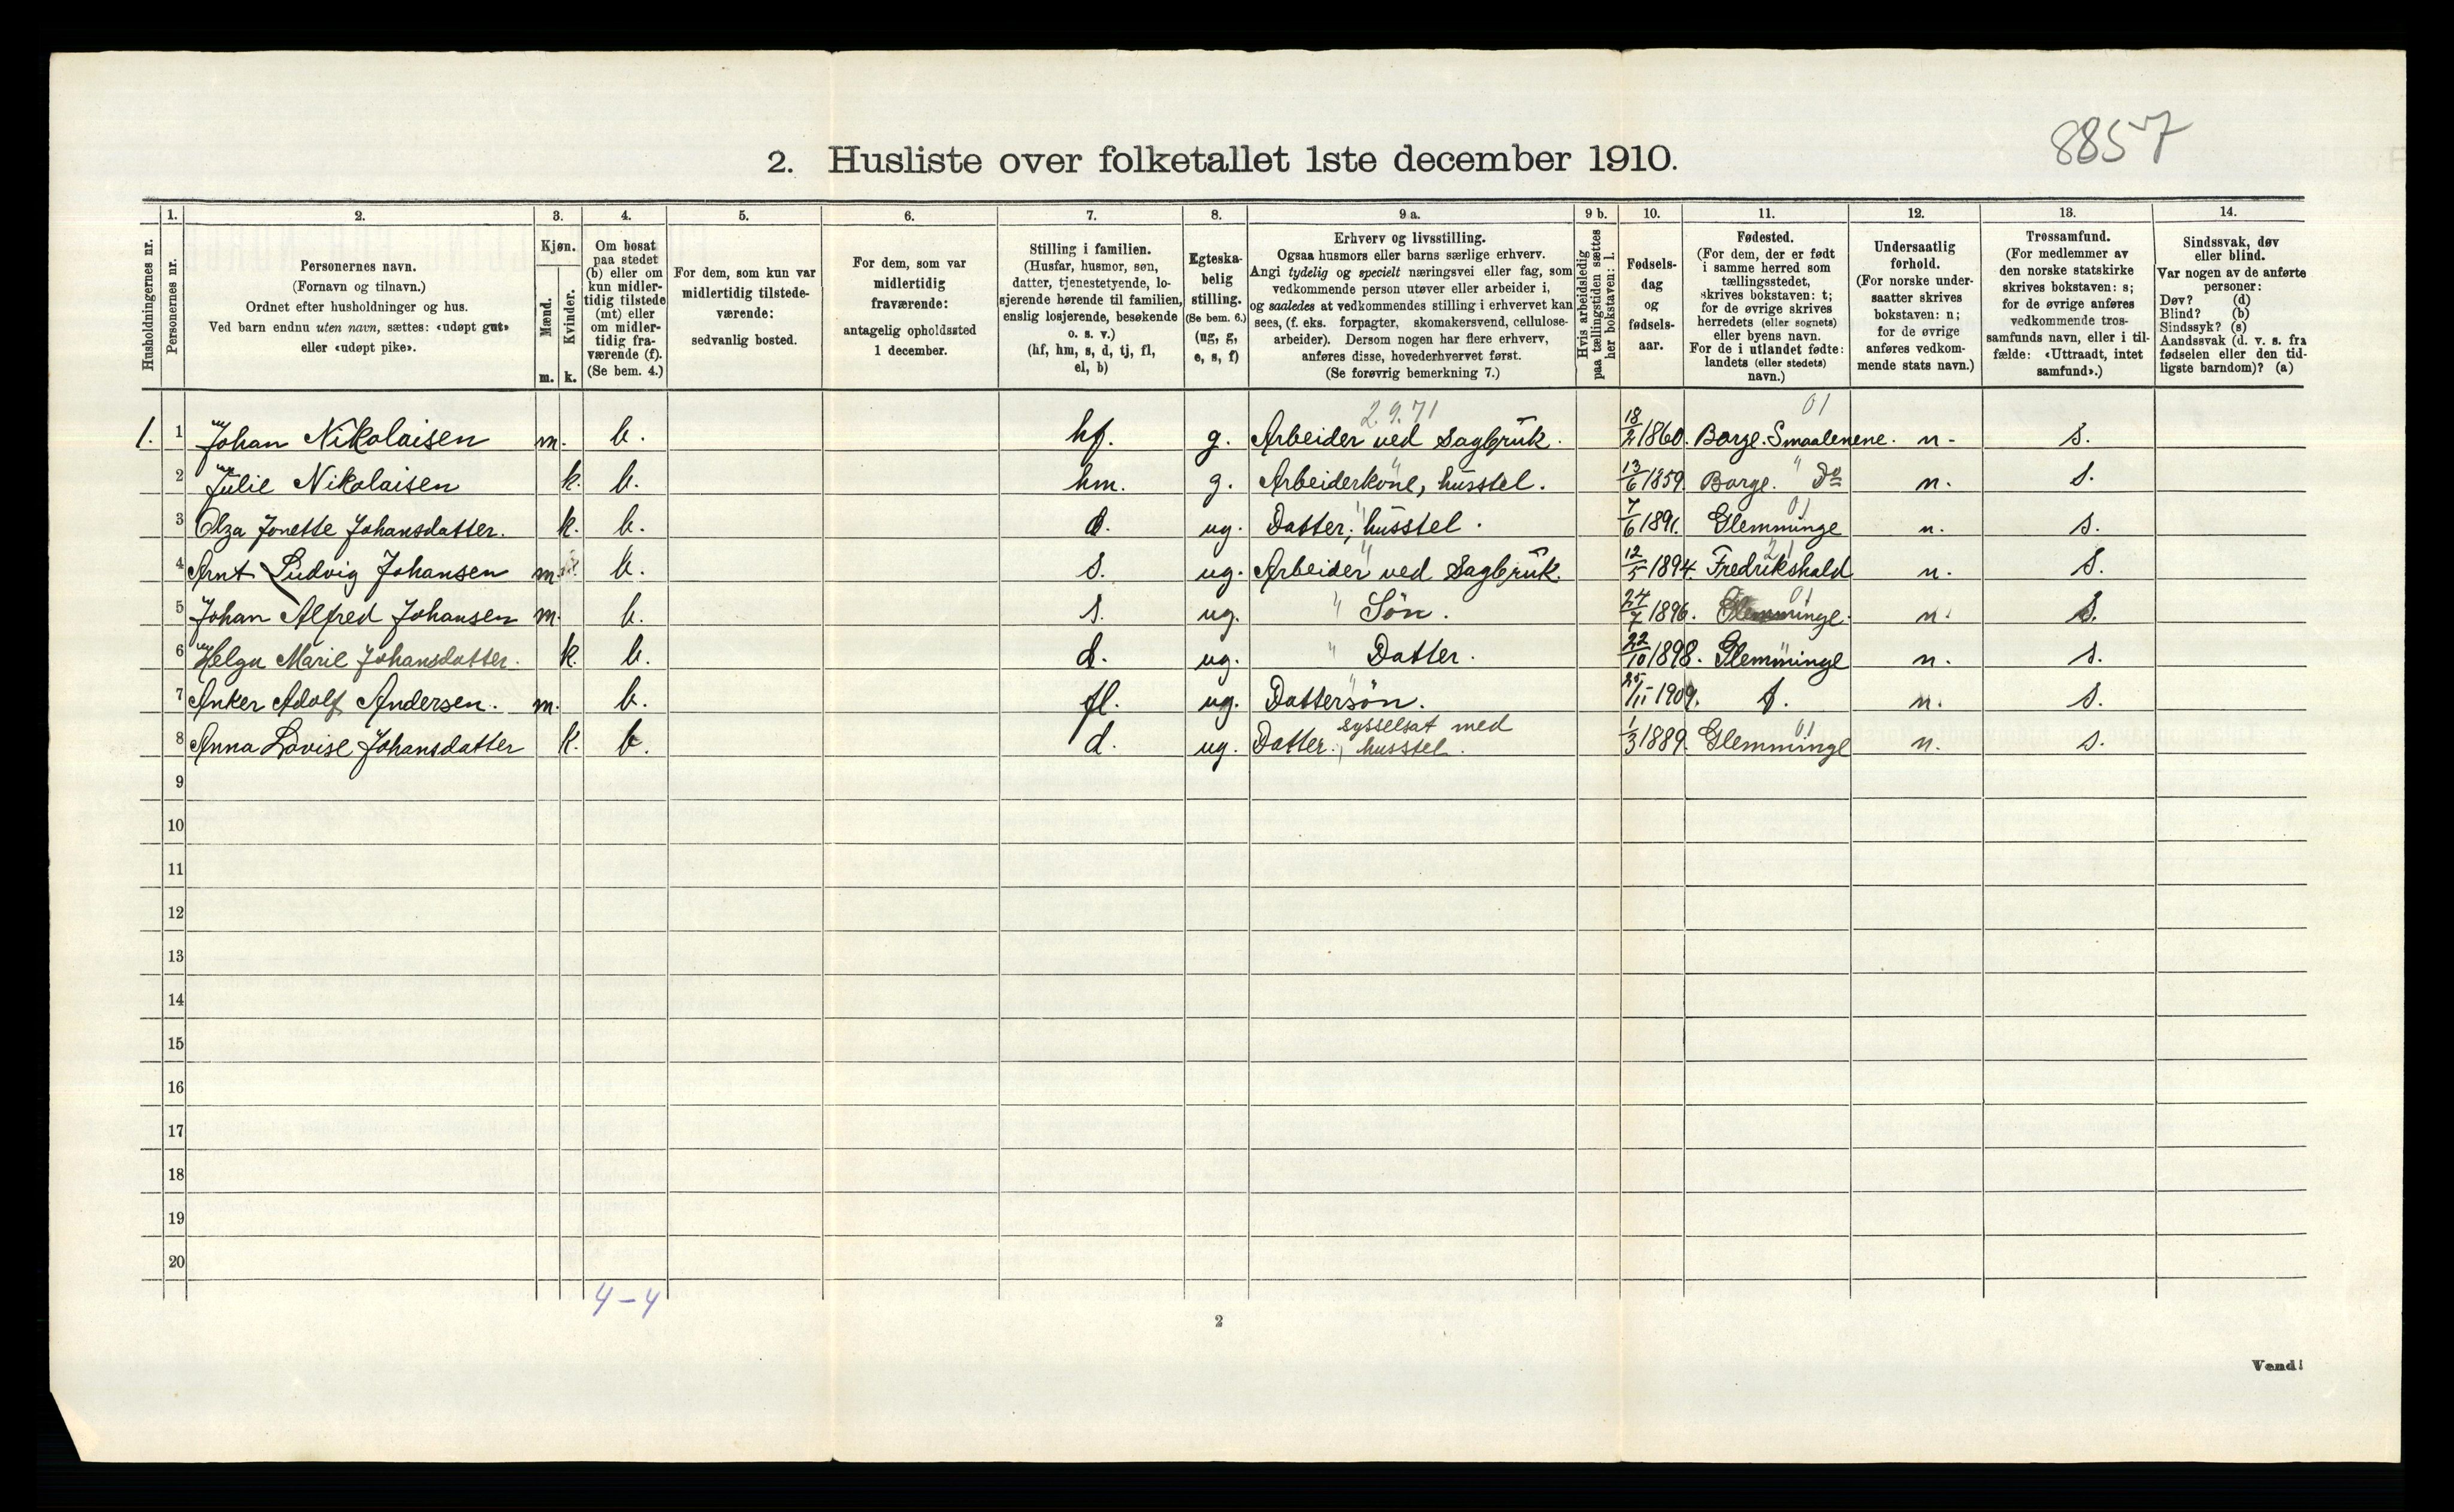 8857
2. Husliste over folketallet 1ste december 1910.
Husholdningernes nr.
1.
Personernes nr.
2.
Personernes navn.
(Fornavn og tilnavn.)
Ordnet efter husholdninger og hus.
Ved barn endnu uten navn, sættes: «udøpt gut»
eller «udøpt pike».
3.
Kjøn.
Mænd.
Kvinder.
m.
k.
4.
Om bosat
paa stedet
(b) eller om
kun midler-
tidig tilstede
(mt) eller
om midler-
tidig fra-
værende (f).
(Se bem. 4.)
5.
For dem, som kun var
midlertidig tilstede-
værende:
sedvanlig bosted.
6.
For dem, som var
midlertidig
fraværende:
antagelig opholdssted
1 december.
7.
Stilling i familien.
(Husfar, husmor, søn,
datter, tjenestetyende, lo-
sjerende hørende til familien,
enslig losjerende, besøkende
o. s. v.)
(hf, hm, s, d, tj, fl,
el, b)
8.
Egteska-
belig
stilling.
(Se bem. 6.)
(ug, g,
e, s, f)
9 a.
Erhverv og livsstilling.
Ogsaa husmors eller barns særlige erhverv.
Angi tydelig og specielt næringsvei eller fag, som
vedkommende person utøver eller arbeider i,
og saaledes at vedkommendes stilling i erhvervet kan
sees, (f. eks. forpagter, skomakersvend, cellulose-
arbeider). Dersom nogen har flere erhverv,
anføres disse, hovederhvervet først.
(Se forøvrig bemerkning 7.)
9 b.
Hvis arbeidsledig
paa tællingstiden sættes
her bokstaven: l.
10.
Fødsels-
dag
og
fødsels-
aar.
11.
Fødested.
(For dem, der er født
i samme herred som
tællingsstedet,
skrives bokstaven: t;
for de øvrige skrives
herredets (eller sognets)
eller byens navn.
For de i utlandet fødte:
landets (eller stedets)
navn.)
12.
Undersaatlig
forhold.
(For norske under-
saatter skrives
bokstaven: n;
for de øvrige
anføres vedkom-
mende stats navn.)
13.
Trossamfund.
(For medlemmer av
den norske statskirke
skrives bokstaven: s;
for de øvrige anføres
vedkommende tros-
samfunds navn, eller i til-
fælde: «Uttraadt, intet
samfund».)
14.
Sindssvak, døv
eller blind.
Var nogen av de anførte
personer:
Døv? (d)
Blind? (b)
Sindssyk? (s)
Aandssvak (d. v. s. fra
fødselen eller den tid-
ligste barndom)? (a)
29.71 01
1. 1 Johan Nikolaisen m. b. hf. g. Arbeider ved Sagbruk. 18/2 1860. Borge. Smaalenene. n. s.
2 Julie Nikolaisen k. b. hm. g. Arbeiderkone, husstel. 13/6 1859. Borge. " Do n. s.
01
3 Olga Jonette Johansdatter. k. b. d. ug. Datter, husstel. 7/6 1891. Glemminge n. s.
21
4 Arnt Ludvig Johansen m. b. s. ug. Arbeider ved Sagbruk. 12/5 1894. Fredrikshald n. s.
01
5 Johan Alfred Johansen m. b. s. ug. " Søn. 24/7 1896. Glemminge. n. s.
6 Helga Marie Johansdatter. k. b. d. ug. " Datter. 22/10 1898. Glemminge n. s.
7 Anker Adolf Andersen. m. b. fl. ug. Dattersøn. 25/11 1909. t. n. s.
sysselsat med 01
8 Anna Lovise Johansdatter k. b. d. ug. Datter., husstel. 1/3 1889. Glemminge n. s.
9
10
11
12
13
14
15
16
17
18
19
20
4–4
2
Vend!